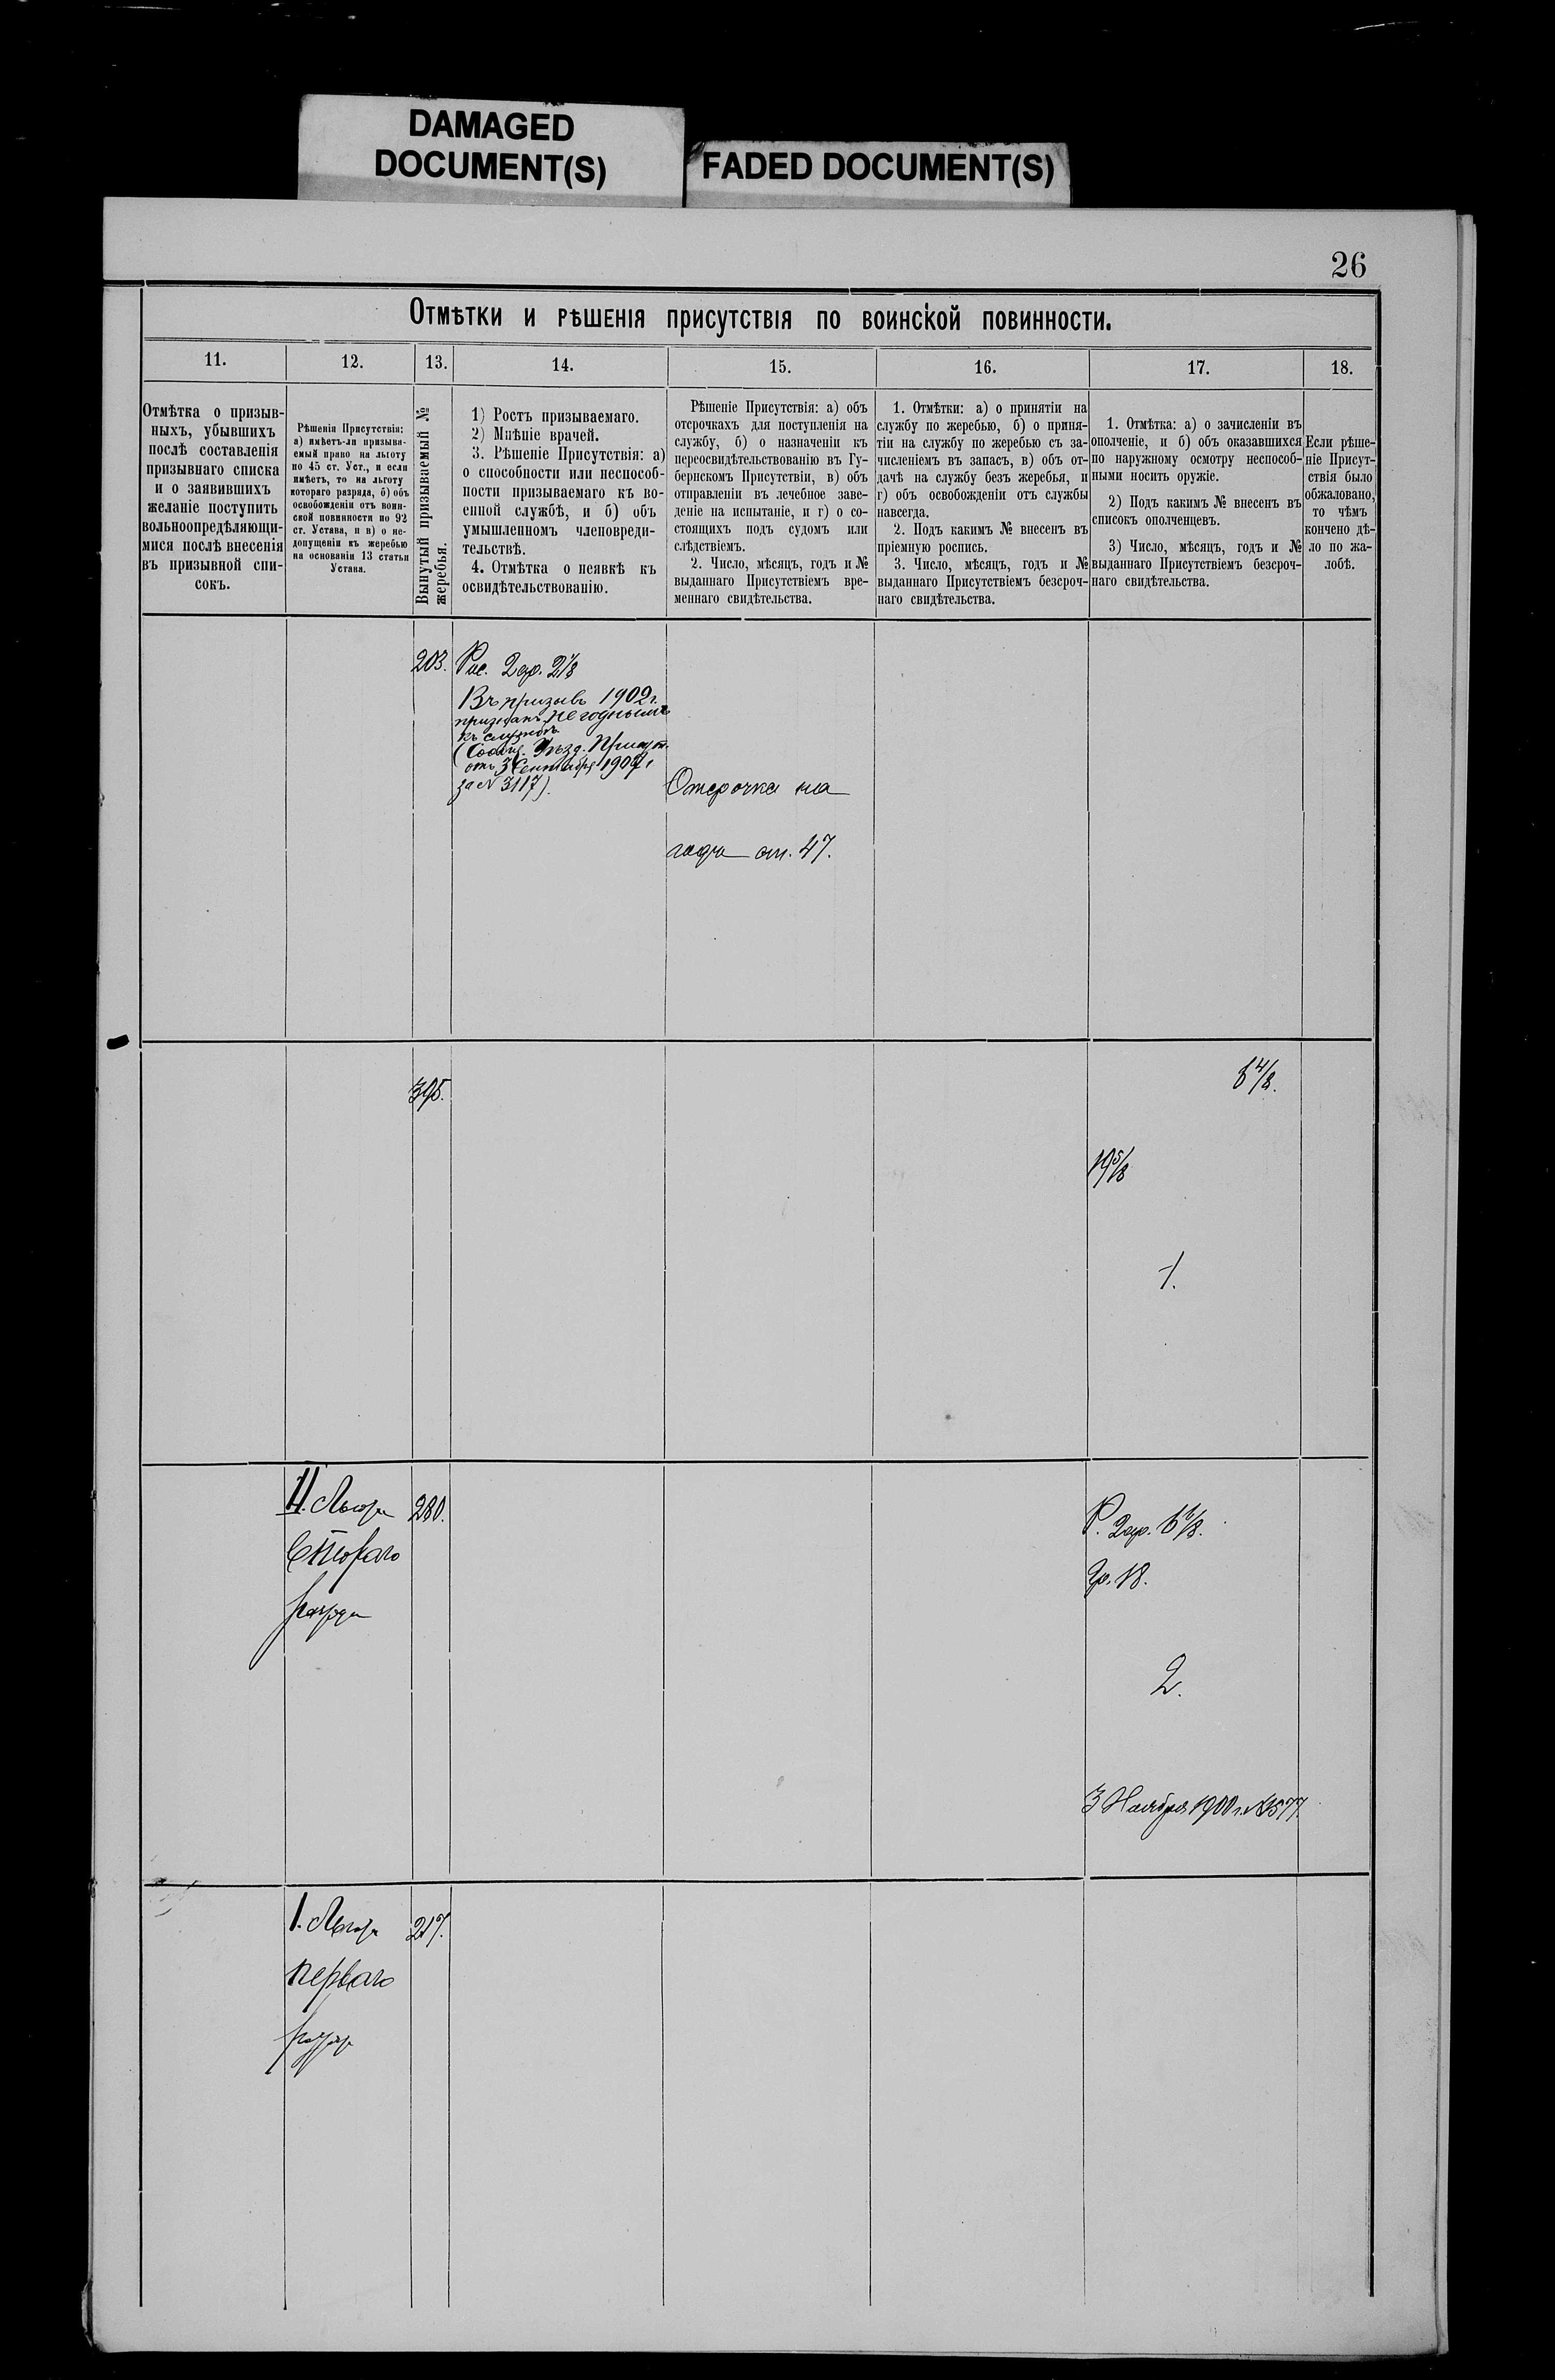 DAMAGED
DOCUMENT(S)
FADED DOCUMENT(S)
26
Отмѣтки и рѣшенія присутствія по воинской повинности.
11.
12.
13.
14.
15.
16.
17.
18.
Отмѣтка о призыв-
ныхъ, убывшихъ
послѣ составленія
призывнаго списка
и о заявившихъ
желаніе поступить
вольноопредѣляющи-
мися послѣ внесенія
въ призывной спи-
сокъ.
Рѣшенія Присутствія:
а) имѣетъ-ли призыва-
емый право на льготу
по 45 ст. Уст., и если
имѣетъ, то на льготу
котораго разряда, б) объ
освобожденіи отъ воин-
ской повинности по 92
ст. Устава, и в) о не-
допущеніи къ жеребью
на основаніи 13 статьи
Устава.
Вынутый призываемый №
жеребья.
1) Ростъ призываемаго.
2) Мнѣніе врачей.
3. Рѣшеніе Присутствія: а)
о способности или неспособ-
ности призываемаго къ во-
енной службѣ, и б) объ
умышленномъ членовреди-
тельствѣ.
4. Отмѣтка о неявкѣ къ
освидѣтельствованію.
Рѣшеніе Присутствія: а) объ
отсрочкахъ для поступленія на
службу, б) о назначеніи къ
переосвидѣтельствованію въ Гу-
бернскомъ Присутствіи, в) объ
отправленіи въ лечебное заве-
деніе на испытаніе, и г) о со-
стоящихъ подъ судомъ или
слѣдствіемъ.
2. Число, мѣсяцъ, годъ и №
выданнаго Присутствіемъ вре-
меннаго свидѣтельства.
1. Отмѣтки: а) о принятіи на
службу по жеребью, б) о приня-
тіи на службу по жеребью съ за-
численіемъ въ запасъ, в) объ от-
дачѣ на службу безъ жеребья, и
г) объ освобожденіи отъ службы
навсегда.
2. Подъ какимъ № внесенъ въ
пріемную роспись.
3. Число, мѣсяцъ, годъ и №
выданнаго Присутствіемъ безсроч-
наго свидѣтельства.
1. Отмѣтка: а) о зачисленіи въ
ополченіе, и б) объ оказавшихся
по наружному осмотру неспособ-
ными носить оружіе.
2) Подъ какимъ № внесенъ въ
списокъ ополченцевъ.
3) Число, мѣсяцъ, годъ и №
выданнаго Присутствіемъ безсроч-
наго свидѣтельства.
Если рѣше-
ніе Присут-
ствія было
обжаловано,
то чѣмъ
кончено дѣ-
ло по жа-
лобѣ.
203.
2 ар. 2 1/8
Въ призывъ 1902 г.
признанъ негоднымъ
къ службѣ
(Сообщ. Уѣзд. Присут.
отъ 3 Сентября
за № 3117).
Отсрочка на
годъ ст. 47.
395.
6 4/8.
1.
II. Льгота
второго
разряда
280.
Р. 2 ар. 6 6/8.
гр. 18.
2.
3 Ноября 1900 г. № 1577.
I. Льгота
перваго
разряда
217.